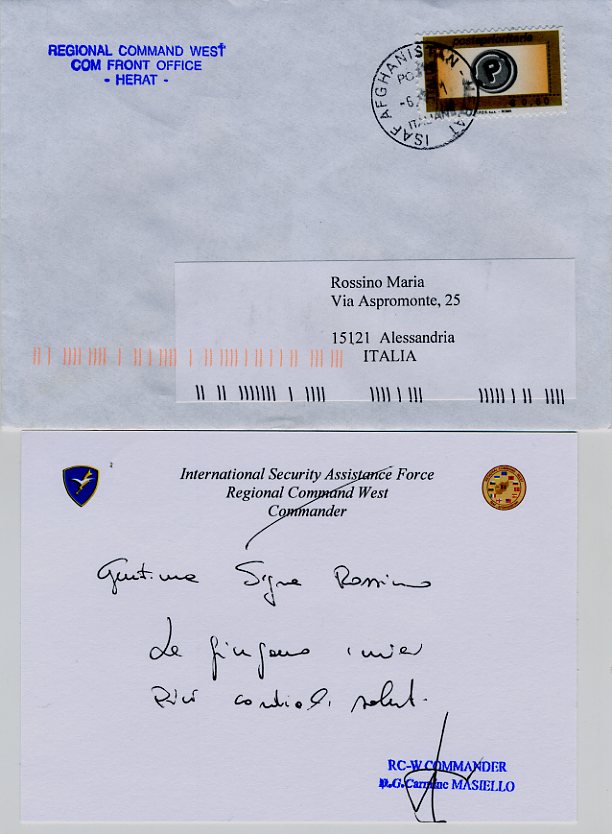 REGIONAL COMMAND WEST
COM FRONT OFFICE
- HERAT -
postaprioritaria
P
€ 0,60
ISAF AFGHANISTAN -
ITALIAN
Rossino Maria
Via Aspromonte, 25
15121 Alessandria
ITALIA
International Security Assistance Force
Regional Command West
Commander
Gent.ma Sig.ra Rossino
Le giungano i miei
più cordiali saluti.
RC-W COMMANDER
B.G. Carmine MASIELLO